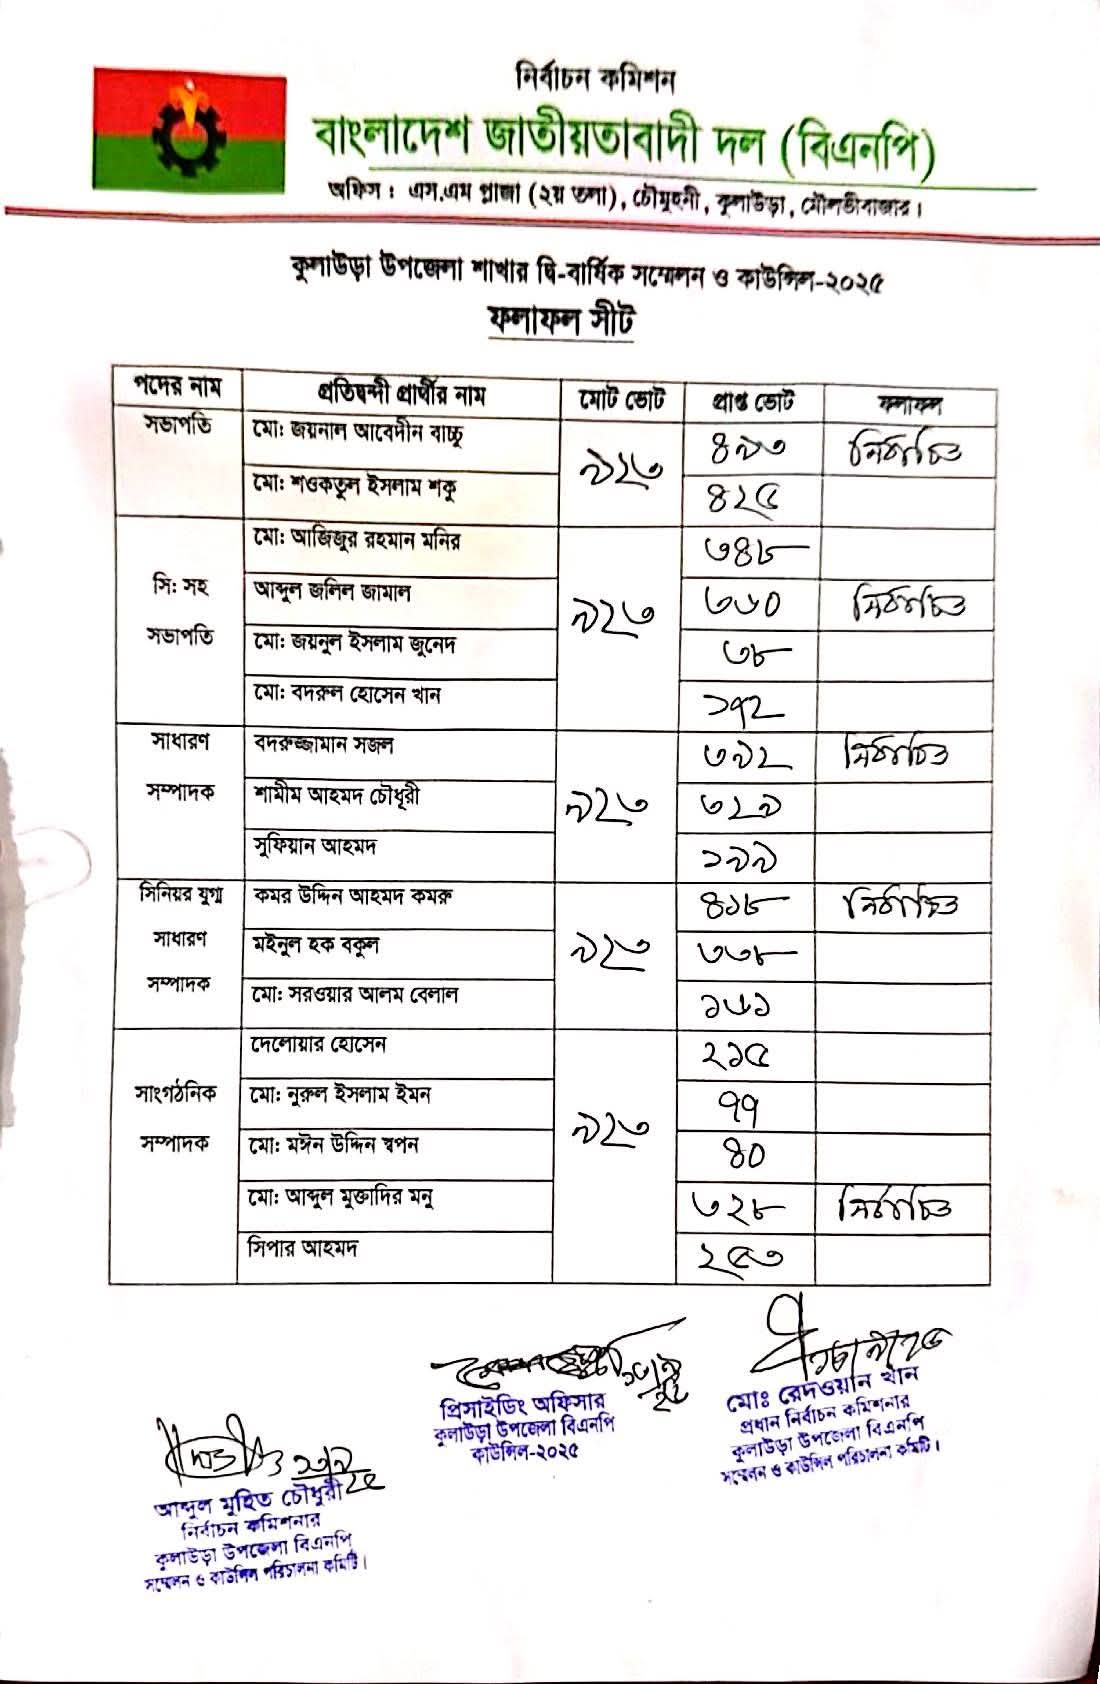 নির্বাচন কমিশন
বাংলাদেশ জাতীয়তাবাদী দল (বিএনপি)
অফিস : এস.এম প্লাজা (২য় তলা), চৌমুহনী, কুলাউড়া, মৌলভীবাজার।
কুলাউড়া উপজেলা শাখার দ্বি-বার্ষিক সম্মেলন ও কাউন্সিল-২০২৫
ফলাফল সীট
পদের নাম প্রতিদ্বন্দী প্রার্থীর নাম মোট ভোট প্রাপ্ত ভোট ফলাফল
সভাপতি মো: জয়নাল আবেদীন বাচ্চু ৯২৩ ৪৯৩ নির্বাচিত
মো: শওকতুল ইসলাম শকু ৪২৫
সি: সহ সভাপতি মো: আজিজুর রহমান মনির ৯২৩ ৩৪৮
আব্দুল জলিল জামাল ৩৬০ নির্বাচিত
মো: জয়নুল ইসলাম জুনেদ ৩৮
মো: বদরুল হোসেন খান ১৭২
সাধারণ সম্পাদক বদরুজ্জামান সজল ৯২৩ ৩৯২ নির্বাচিত
শামীম আহমদ চৌধুরী ৩২৯
সুফিয়ান আহমদ ১৯৯
সিনিয়র যুগ্ম সাধারণ সম্পাদক কমর উদ্দিন আহমদ কমরু ৯২৩ ৪১৮ নির্বাচিত
মইনুল হক বকুল ৩৩৮
মো: সরওয়ার আলম বেলাল ১৬১
সাংগঠনিক সম্পাদক দেলোয়ার হোসেন ৯২৩ ২১৫
মো: নুরুল ইসলাম ইমন ৭৭
মো: মঈন উদ্দিন স্বপন ৪০
মো: আব্দুল মুক্তাদির মনু ৩২৮ নির্বাচিত
সিপার আহমদ ২৫৩
মোঃ রেদওয়ান খান
প্রধান নির্বাচন কমিশনার
কুলাউড়া উপজেলা বিএনপি
সম্মেলন ও কাউন্সিল পরিচালনা কমিটি।
প্রিসাইডিং অফিসার
কুলাউড়া উপজেলা বিএনপি
কাউন্সিল-২০২৫
আব্দুল মুহিত চৌধুরী
নির্বাচন কমিশনার
কুলাউড়া উপজেলা বিএনপি
সম্মেলন ও কাউন্সিল পরিচালনা কমিটি।